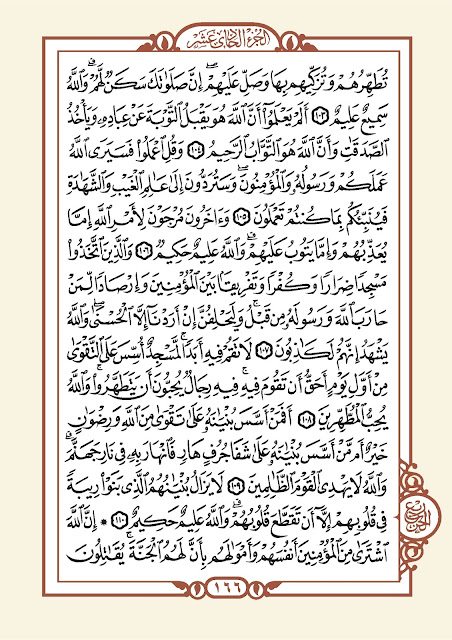 الجزء الحادي عشر
تُطَهِّرُهُمْ وَتُزَكِّيهِم بِهَا وَصَلِّ عَلَيْهِمْ إِنَّ صَلَوٰتَكَ سَكَنٌ لَّهُمْ وَاللَّهُ
سَمِيعٌ عَلِيمٌ ١٠٣ أَلَمْ يَعْلَمُوٓا أَنَّ اللَّهَ هُوَ يَقْبَلُ التَّوْبَةَ عَنْ عِبَادِهِ وَيَأْخُذُ
الصَّدَقَٰتِ وَأَنَّ اللَّهَ هُوَ التَّوَّابُ الرَّحِيمُ ١٠٤ وَقُلِ اعْمَلُوا فَسَيَرَى اللَّهُ
عَمَلَكُمْ وَرَسُولُهُ وَالْمُؤْمِنُونَ وَسَتُرَدُّونَ إِلَىٰ عَالِمِ الْغَيْبِ وَالشَّهَادَةِ
فَيُنَبِّئُكُم بِمَا كُنتُمْ تَعْمَلُونَ ١٠٥ وَءَاخَرُونَ مُرْجَوْنَ لِأَمْرِ اللَّهِ إِمَّا
يُعَذِّبُهُمْ وَإِمَّا يَتُوبُ عَلَيْهِمْ وَاللَّهُ عَلِيمٌ حَكِيمٌ ١٠٦ وَالَّذِينَ اتَّخَذُوا
مَسْجِدًا ضِرَارًا وَكُفْرًا وَتَفْرِيقًا بَيْنَ الْمُؤْمِنِينَ وَإِرْصَادًا لِّمَنْ
حَارَبَ اللَّهَ وَرَسُولَهُ مِن قَبْلُ وَلَيَحْلِفُنَّ إِنْ أَرَدْنَا إِلَّا الْحُسْنَىٰ وَاللَّهُ
يَشْهَدُ إِنَّهُمْ لَكَاذِبُونَ ١٠٧ لَا تَقُمْ فِيهِ أَبَدًا لَّمَسْجِدٌ أُسِّسَ عَلَى التَّقْوَىٰ
مِنْ أَوَّلِ يَوْمٍ أَحَقُّ أَن تَقُومَ فِيهِ فِيهِ رِجَالٌ يُحِبُّونَ أَن يَتَطَهَّرُوا وَاللَّهُ
يُحِبُّ الْمُطَّهِّرِينَ ١٠٨ أَفَمَنْ أَسَّسَ بُنْيَٰنَهُ عَلَىٰ تَقْوَىٰ مِنَ اللَّهِ وَرِضْوَانٍ
خَيْرٌ أَم مَّنْ أَسَّسَ بُنْيَٰنَهُ عَلَىٰ شَفَا جُرُفٍ هَارٍ فَانْهَارَ بِهِ فِي نَارِ جَهَنَّمَ
وَاللَّهُ لَا يَهْدِي الْقَوْمَ الظَّالِمِينَ ١٠٩ لَا يَزَالُ بُنْيَٰنُهُمُ الَّذِي بَنَوْا رِيبَةً
فِي قُلُوبِهِمْ إِلَّا أَن تَقَطَّعَ قُلُوبُهُمْ وَاللَّهُ عَلِيمٌ حَكِيمٌ ١١٠ * إِنَّ اللَّهَ
اشْتَرَىٰ مِنَ الْمُؤْمِنِينَ أَنفُسَهُمْ وَأَمْوَالَهُم بِأَنَّ لَهُمُ الْجَنَّةَ يُقَاتِلُونَ
١٦٦